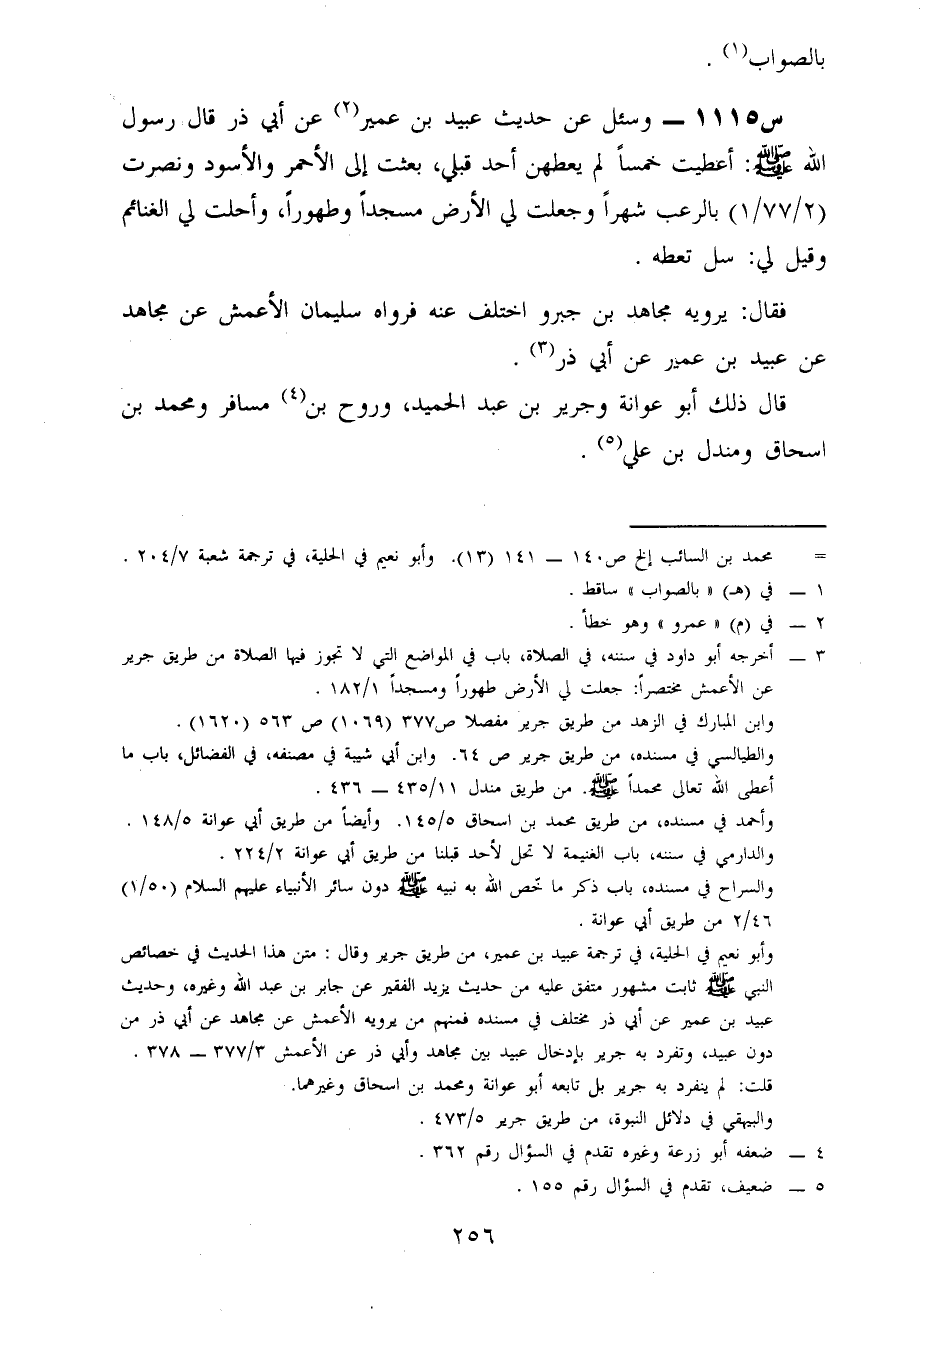 بالصواب(١) .
س١١١٥ ــ وسئل عن حديث عبيد بن عمير(٢) عن أبي ذر قال رسول
الله ﷺ: أعطيت خمساً لم يعطهن أحد قبلي، بعثت إلى الأحمر والأسود ونصرت
(١/٧٧/٢) بالرعب شهراً وجعلت لي الأرض مسجداً وطهوراً، وأحلت لي الغنائم
وقيل لي: سل تعطه .
فقال: يرويه مجاهد بن جبرو اختلف عنه فرواه سليمان الأعمش عن مجاهد
عن عبيد بن عمير عن أبي ذر(٣) .
قال ذلك أبو عوانة وجرير بن عبد الحميد، وروح بن(٤) مسافر ومحمد بن
اسحاق ومندل بن علي(٥) .
= محمد بن السائب إلخ ص١٤٠ ــ ١٤١ (١٣). وأبو نعيم في الحلية، في ترجمة شعبة ٢٠٤/٧ .
١ ــ في (هـ) « بالصواب » ساقط .
٢ ــ في (م) « عمرو » وهو خطأ .
٣ ــ أخرجه أبو داود في سننه، في الصلاة، باب في المواضع التي لا تجوز فيها الصلاة من طريق جرير
عن الأعمش مختصراً: جعلت لي الأرض طهوراً ومسجداً ١٨٢/١ .
وابن المبارك في الزهد من طريق جرير مفصلا ص٣٧٧ (١٠٦٩) ص ٥٦٣ (١٦٢٠) .
والطيالسي في مسنده، من طريق جرير ص ٦٤. وابن أبي شيبة في مصنفه، في الفضائل، باب ما
أعطى الله تعالى محمداً ﷺ. من طريق مندل ٤٣٥/١١ ــ ٤٣٦ .
وأحمد في مسنده، من طريق محمد بن اسحاق ١٤٥/٥. وأيضاً من طريق أبي عوانة ١٤٨/٥ .
والدارمي في سننه، باب الغنيمة لا تحل لأحد قبلنا من طريق أبي عوانة ٢٢٤/٢ .
والسراح في مسنده، باب ذكر ما خّص الله به نبيه ﷺ دون سائر الأنبياء عليهم السلام (١/٥٠)
٢/٤٦ من طريق أبي عوانة .
وأبو نعيم في الحلية، في ترجمة عبيد بن عمير، من طريق جرير وقال : متن هذا الحديث في خصائص
النبي ﷺ ثابت مشهور متفق عليه من حديث يزيد الفقير عن جابر بن عبد الله وغيره، وحديث
عبيد بن عمير عن أبي ذر مختلف في مسنده فمنهم من يرويه الأعمش عن مجاهد عن أبي ذر من
دون عبيد، وتفرد به جرير بإدخال عبيد بين مجاهد وأبي ذر عن الأعمش ٣٧٧/٣ ــ ٣٧٨ .
قلت: لم ينفرد به جرير بل تابعه أبو عوانة ومحمد بن اسحاق وغيرهما.
والبيهقي في دلائل النبوة، من طريق جرير ٤٧٣/٥ .
٤ ــ ضعفه أبو زرعة وغيره تقدم في السؤال رقم ٣٦٢ .
٥ ــ ضعيف، تقدم في السؤال رقم ١٥٥ .
٢٥٦